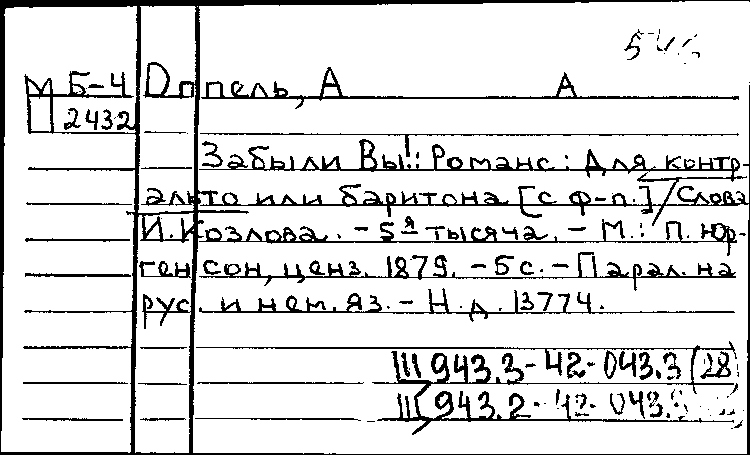 М Б-4 Оппель, А А
2432
Забыли Вы!: Романс: Для контр-
альто или баритона [с ф-п.] / Слова
И. Козлова. - 5я тысяча. - М.: П. Юр-
генсон, ценз. 1879. - 5 с. - Парал. на
рус. и нем. яз. - Н.д. 13774.
III 943.3-42-043.3 (28)